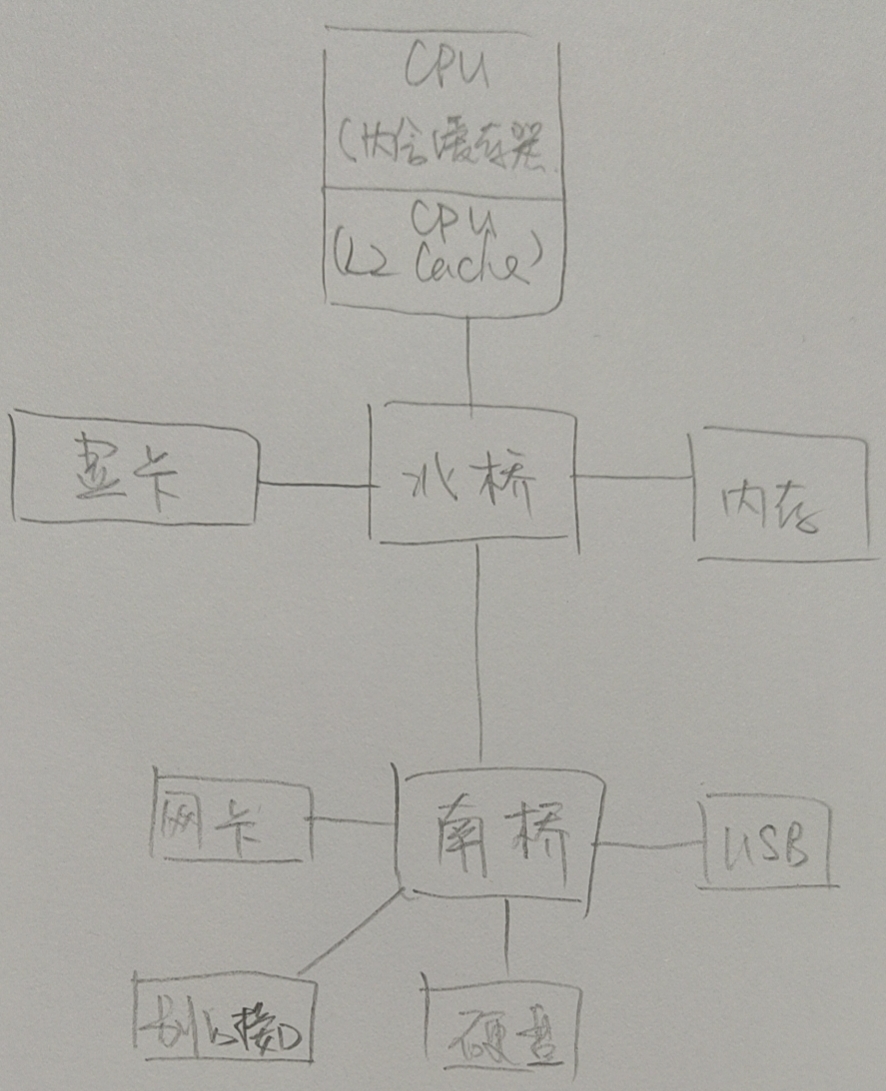 CPU
缓存器
CPU
(L2 Cache)
显卡
北桥
内存
网卡
南桥
USB
接口
硬盘